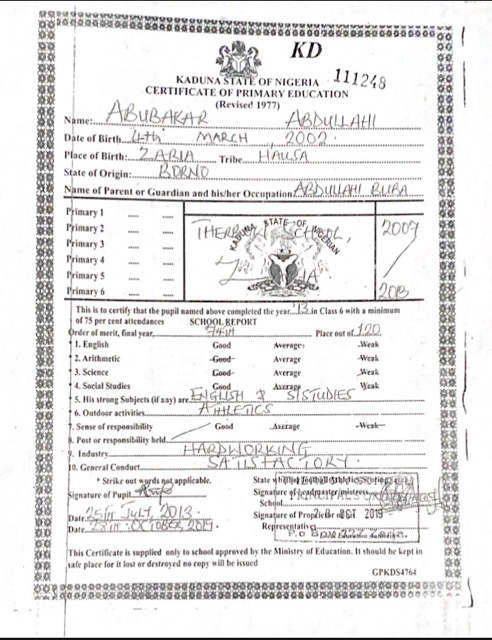 KD
KADUNA STATE OF NIGERIA 111248
CERTIFICATE OF PRIMARY EDUCATION
(Revised 1977)
Name: ABUBAKAR ABDULLAHI
Date of Birth 4th MARCH, 2002.
Place of Birth: ZARIA Tribe HAUSA
State of Origin: BORNO
Name of Parent or Guardian and his/her Occupation ABDULLAHI
Primary 1 ..... .....
Primary 2 ..... ..... SCHOOL, 2007
Primary 3 ..... .....
Primary 4 ..... .....
Primary 5 ..... .....
Primary 6 ..... ..... 2013
KADUNA STATE OF NIGERIAN
This is to certify that the pupil named above completed the year '13 in Class 6 with a minimum
of 75 per cent attendances SCHOOL REPORT
Order of merit, final year, 74TH Place out of 120
1. English Good Average Weak
2. Arithmetic Good Average Weak
3. Science Good Average Weak
4. Social Studies Good Average Weak
5. His strong Subjects (if any) are ENGLISH & S/STUDIES
6. Outdoor activities ATHLETICS
7. Sense of responsibility Good Average Weak
8. Post or responsibility held
9. Industry HARDWORKING
10. General Conduct SATISFACTORY.
* Strike out words not applicable.
Signature of Pupil
Signature of Headmaster/mistress
School
Date 25TH JULY, 2013
Signature of 2019
Date 28TH OCTOBER, 2019.
Representative
P.O BOX
This Certificate is supplied only to school approved by the Ministry of Education. It should be kept in
safe place for it lost or destroyed no copy will be issued
GPKDS4764